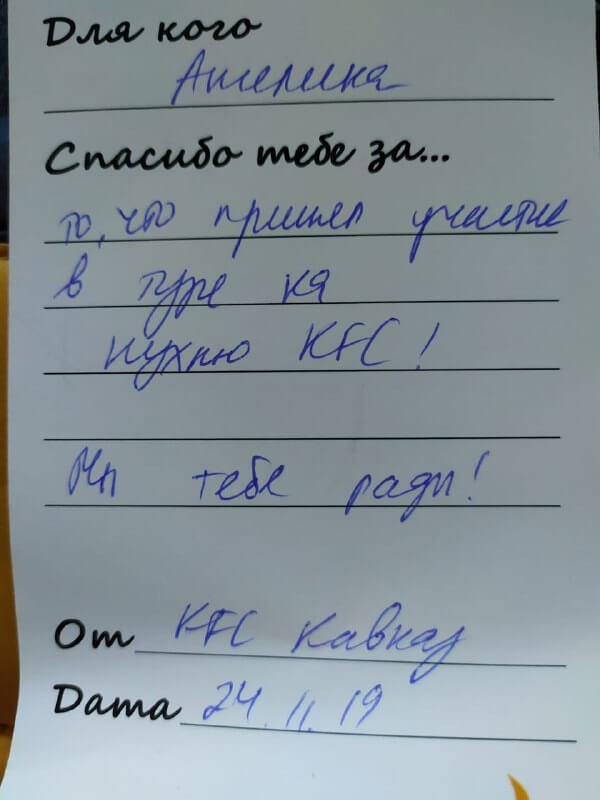 Для кого
Ангелина
Спасибо тебе за...
то, что принял участие
в туре на
кухню KFC!
Мы тебе рады!
От KFC Кавказ
Дата 24.11.19